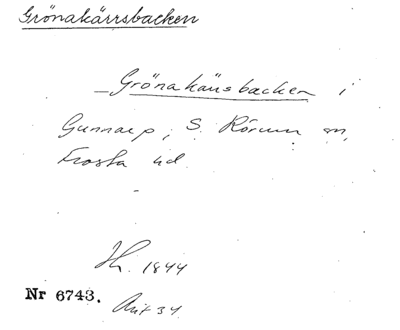 Grönakärrsbacken
— Grönakäusbacken i
Gunnarp, S. Rörum sn,
Frosta hd.
1844
Nr 6743.
34